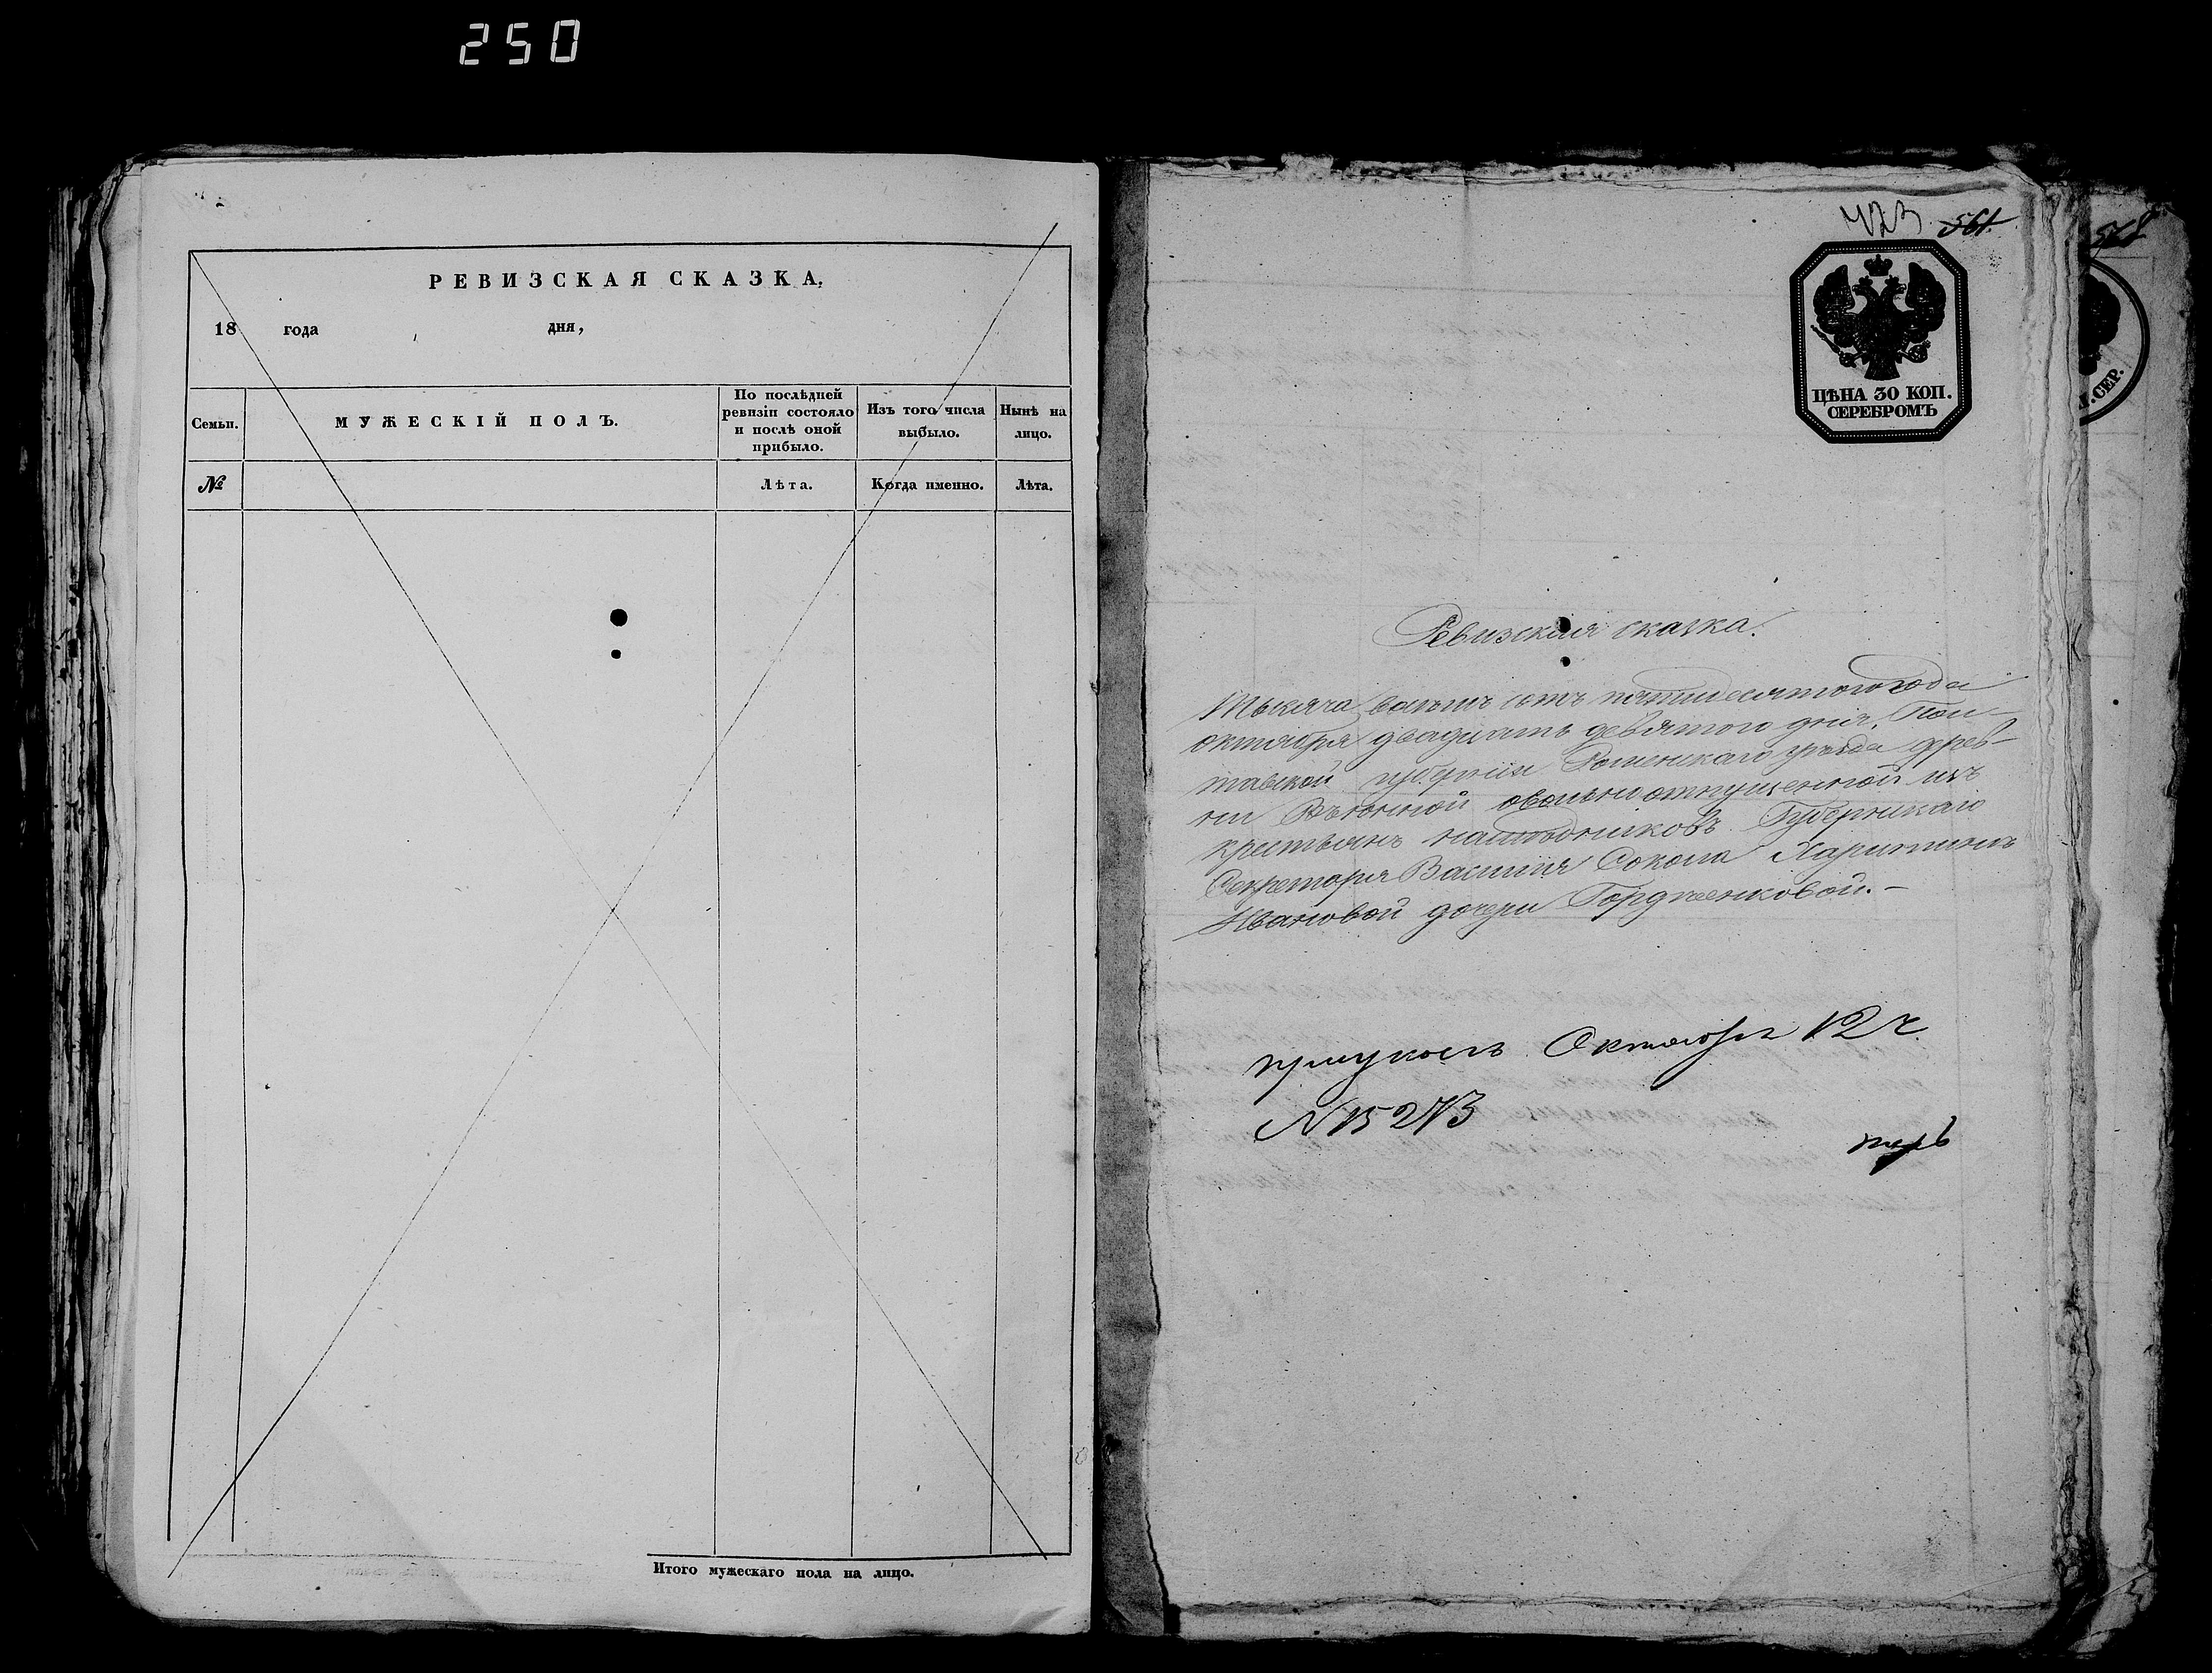 250
РЕВИЗСКАЯ СКАЗКА,
18 года дня,
Семьи.
МУЖЕСКІЙ ПОЛЪ.
По послѣдней
ревизіи состояло
и послѣ оной
прибыло.
Изъ того числа
выбыло.
Нынѣ на
лицо.
№
Лѣта.
Когда именно.
Лѣта.
Итого мужескаго пола на лицо.
423 561.
ЦѢНА 30 КОП.
СЕРЕБРОМЪ
СЕР.
Ревизская сказка.
Тысяча восемь сотъ пятидесятого года
октября двадцать девятого дня, Пол-
тавской губерніи Роменскаго уезда дерев-
ни Вьюнной о вольноотпущенной изъ
крестьянъ наследниковъ Губернскаго
Секретаря Василія Сокола Харитинъ
Ивановой дочери Гордѣенковой.-
Октября 12 ч.
N 15273